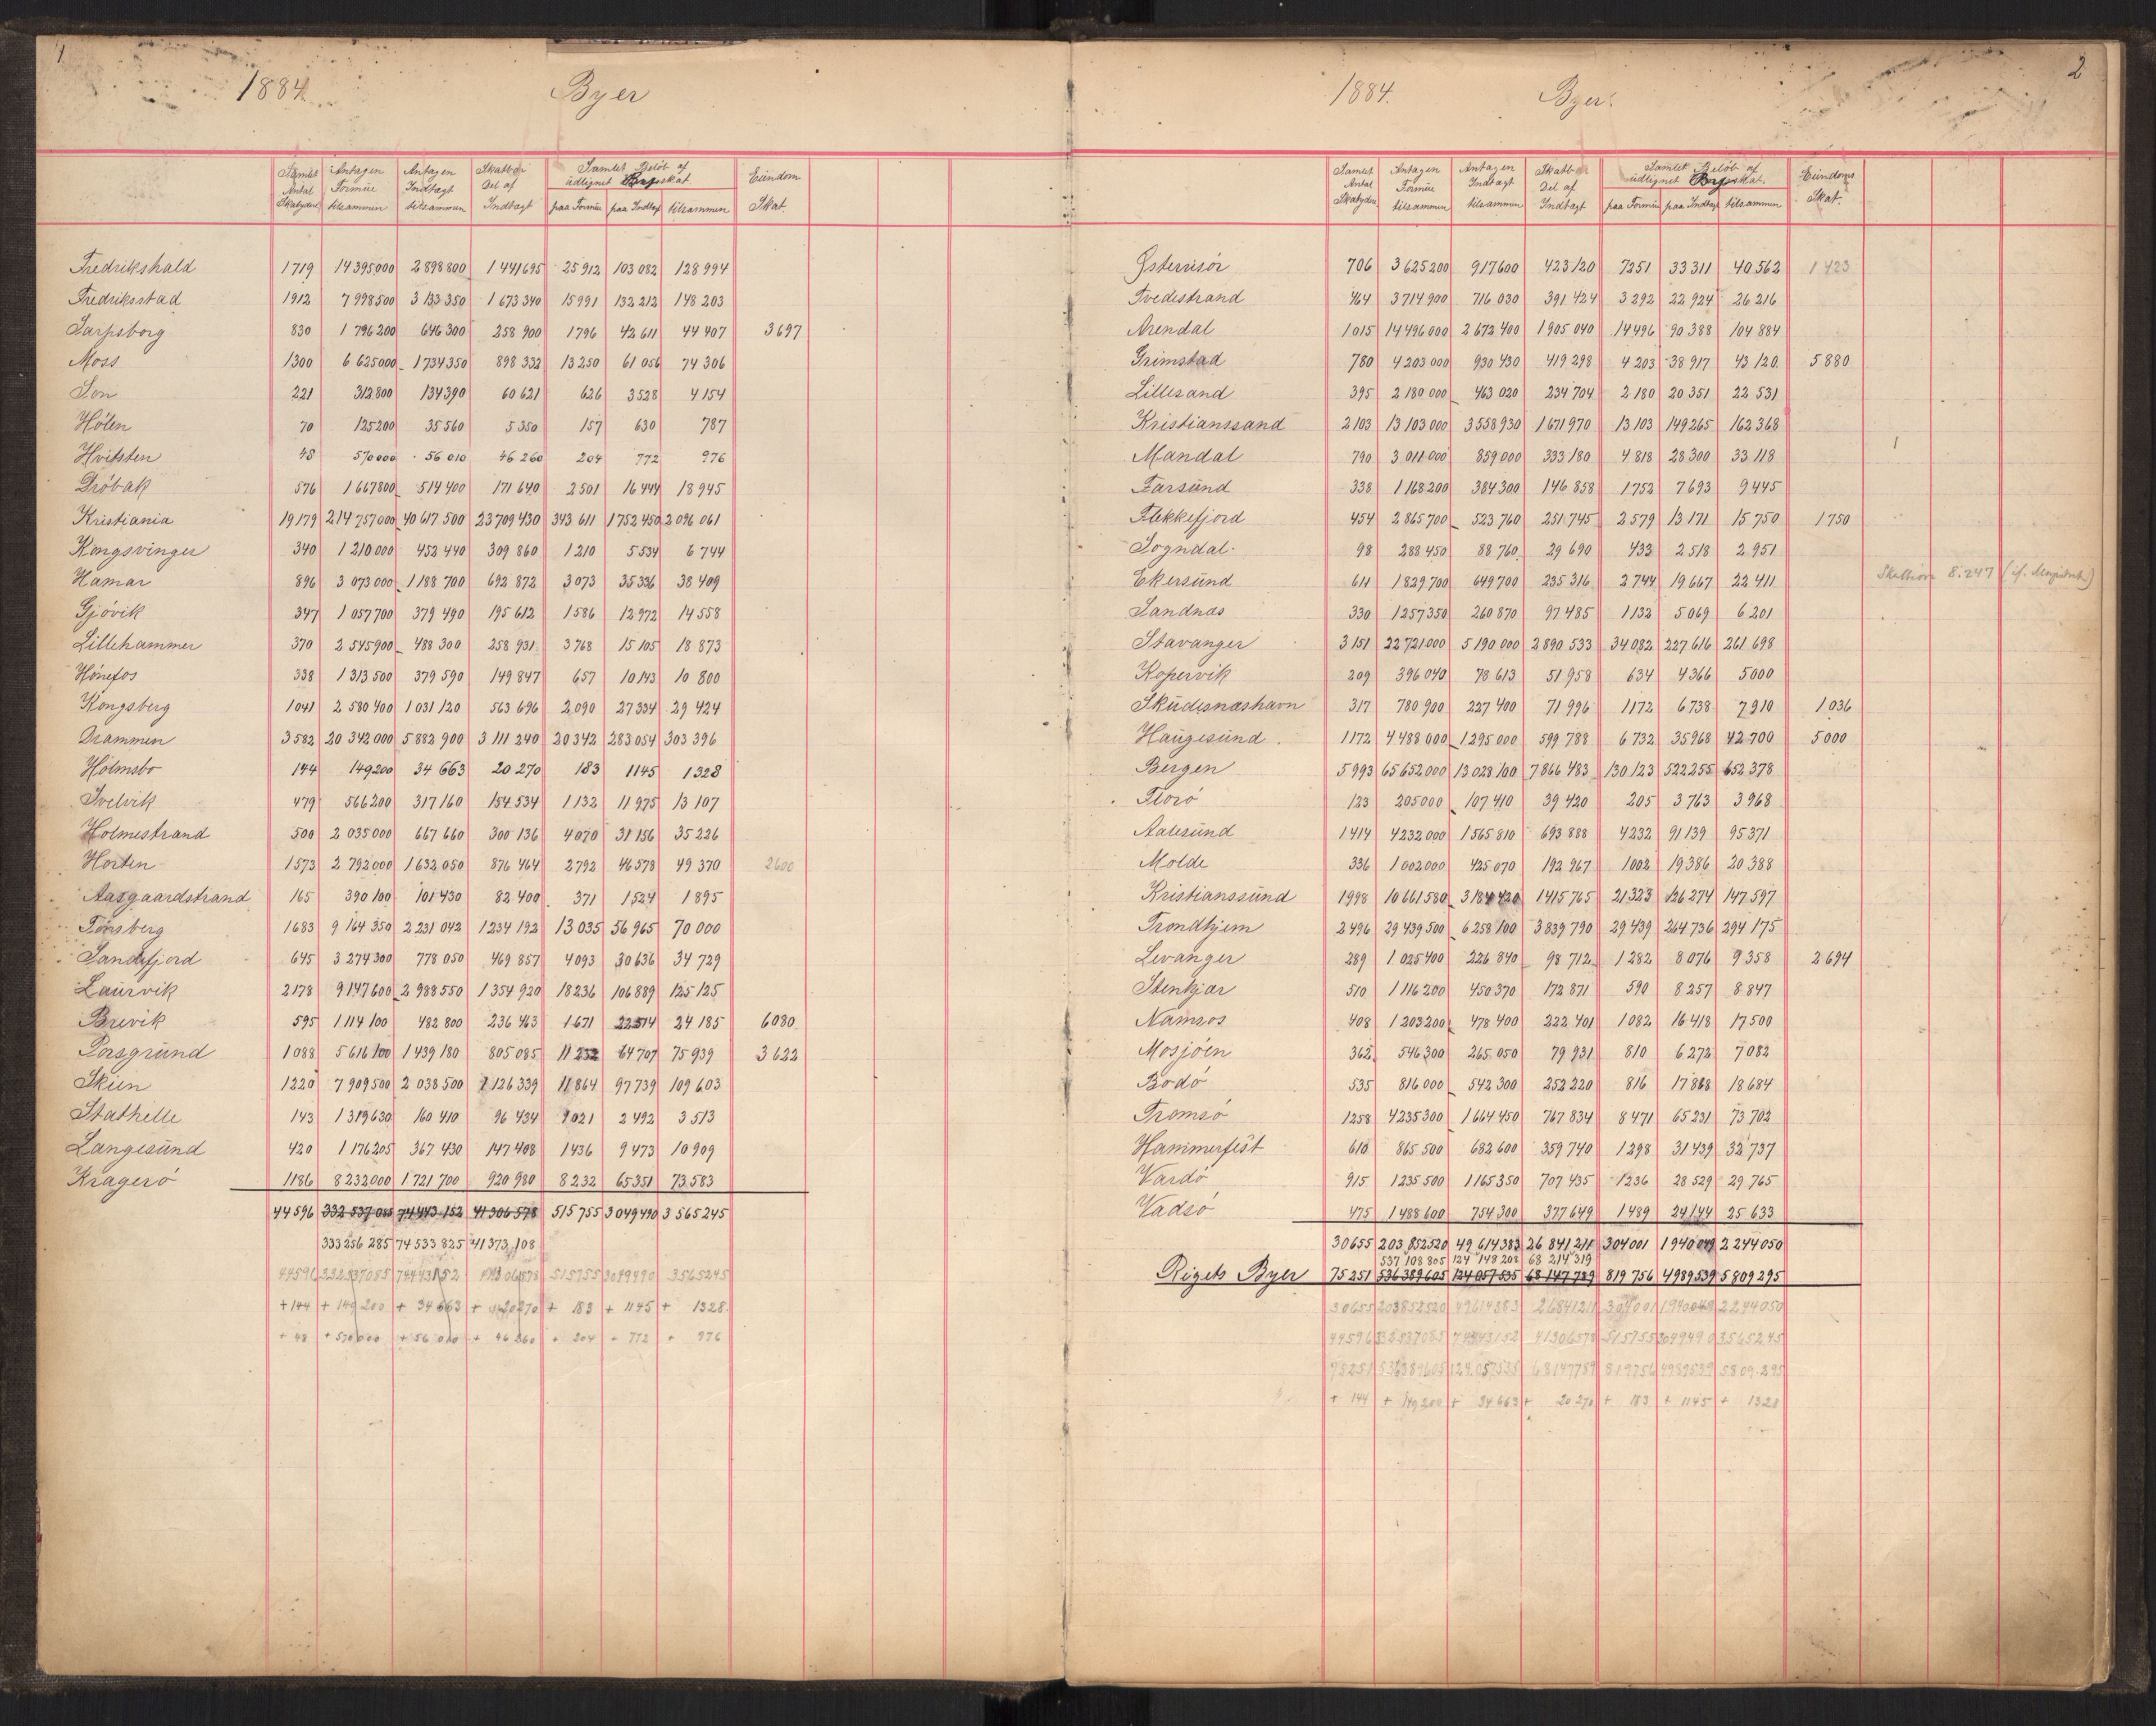 1
1884. Byer
Samlet Antal Skatydere | Antagen Formue tilsammen | Antagen Indtægt tilsammen | Skatbar Del af Indtægt | Samlet Beløb af udlignet Byskat | paa Formue | paa Indtægt | tilsammen | Eiendom Skat
Fredrikshald 1719 14 395 000 2 898 800 1 441 695 25 912 103 082 128 994
Fredriksstad 1912 7 998 500 3 133 350 1 673 340 15 991 132 212 148 203
Sarpsborg 830 1 796 200 646 300 258 900 1796 42 611 44 407 3 697
Moss 1300 6 625 000 1 734 350 898 332 13 250 61 056 74 306
Son 221 312 800 134 390 60 621 626 3 528 4 154
Hölen 70 125 200 35 560 5 350 157 630 787
Hvitsten 48 570 000 56 010 46 260 204 772 976
Dröbak 576 1 667 800 514 400 171 640 2 501 16 444 18 945
Kristiania 19 179 214 757 000 40 617 500 23 709 430 343 611 1 752 450 2 096 061
Kongsvinger 340 1 210 000 452 440 309 860 1 210 5 534 6 744
Hamar 896 3 073 000 1 188 700 692 872 3 073 35 336 38 409
Gjövik 347 1 057 700 379 490 195 612 1 586 12 972 14 558
Lillehammer 370 2 545 900 488 300 258 931 3 768 15 105 18 873
Hönefos 338 1 313 500 379 590 149 847 657 10 143 10 800
Kongsberg 1041 2 580 400 1 031 120 563 696 2 090 27 334 29 424
Drammen 3 582 20 342 000 5 882 900 3 111 240 20 342 283 054 303 396
Holmsbo 144 149 200 34 663 20 270 183 1145 1 328
Svelvik 479 566 200 317 160 154 534 1 132 11 975 13 107
Holmestrand 500 2 035 000 667 660 300 136 4 070 31 156 35 226
Horten 1573 2 792 000 1 632 050 876 464 2792 46 578 49 370 2600
Aasgaardstrand 165 390 100 101 430 82 400 371 1 524 1 895
Tönsberg 1683 9 164 350 2 231 042 1 234 192 13 035 56 965 70 000
Sandefjord 645 3 274 300 778 050 469 857 4 093 30 636 34 729
Laurvik 2178 9 147 600 2 988 550 1 354 920 18 236 106 889 125 125
Brevik 595 1 114 100 482 800 236 463 1 671 22 514 24 185 6080
Porsgrund 1 088 5 616 100 1 439 180 805 085 11 232 64 707 75 939 3 622
Skien 1220 7 909 500 2 038 500 1 126 339 11 864 97 739 109 603
Stathelle 143 1 319 630 160 410 96 434 1 021 2 492 3 513
Langesund 420 1 176 205 367 430 147 408 1436 9 473 10 909
Kragerö 1186 8 232 000 1 721 700 920 980 8 232 65 351 73 583
44 596 332 537 085 74 443 152 41 306 578 515 755 3 049 490 3 565 245
333 256 285 74 533 825 41 373 108
44596 332537085 74443152 41306578 515755 3049490 3565245
+ 144 + 149 200 + 34 663 + 20270 + 183 + 1145 + 1328
+ 48 + 570 000 + 56 010 + 46 260 + 204 + 772 + 976
2
1884. Byer.
Samlet Antal Skatydere | Antagen Formue tilsammen | Antagen Indtægt tilsammen | Skatbar Del af Indtægt | Samlet Beløb af udlignet Byskat. | paa Formue | paa Indtægt | tilsammen | Eiendoms Skat.
Österrisör 706 3 625 200 917 600 423 120 7251 33 311 40 562 1 423
Tvedestrand 464 3 714 900 716 030 391 424 3 292 22 924 26 216
Arendal 1015 14 496 000 2 672 400 1 905 040 14 496 90 388 104 884
Grimstad 780 4 203 000 930 430 419 298 4 203 38 917 43 120 5 880
Lillesand 395 2 180 000 463 020 234 704 2 180 20 351 22 531
Kristianssand 2 103 13 103 000 3 558 930 1 671 970 13 103 149 265 162 368
Mandal 790 3 011 000 859 000 333 180 4 818 28 300 33 118
Farsund 338 1 168 200 384 300 146 858 1752 7 693 9 445
Flekkefjord 454 2 865 700 523 760 251 745 2 579 13 171 15 750 1 750
Sogndal. 98 288 450 88 760 29 690 433 2 518 2 951
Ekersund 611 1 829 700 649 700 235 316 2 744 19 667 22 411 8.247
Sandnæs 330 1 257 350 260 870 97 485 1132 5 069 6 201
Stavanger 3 151 22 721 000 5 190 000 2 890 533 34 082 227 616 261 698
Kopervik 209 396 040 78 613 51 958 634 4 366 5000
Skudesnæshavn 317 780 900 227 400 71 996 1172 6 738 7 910 1 036
Haugesund. 1172 4 488 000 1 295 000 599 788 6 732 35 968 42 700 5 000
Bergen 5 993 65 652 000 13 028 100 7 866 483 130 123 522 255 652 378
Florö 123 205 000 107 410 39 420 205 3 763 3 968
Aalesund 1414 4 232 000 1 565 810 693 888 4232 91 139 95 371
Molde 336 1 002 000 425 070 192 967 1002 19 386 20 388
Kristianssund 1998 10 661 580 3 184 420 1 415 765 21 323 126 274 147 597
Trondhjem 2 496 29 439 500 6 258 100 3 839 790 29 439 264 736 294 175
Levanger 289 1 025 400 226 840 98 712 1 282 8 076 9 358 2 694
Stenkjær 510 1 116 200 450 370 172 871 590 8 257 8 847
Namsos 408 1 203 200 478 400 222 401 1 082 16 418 17 500
Mosjöen 362 546 300 265 050 79 931 810 6 272 7 082
Bodö 535 816 000 542 300 252 220 816 17 868 18 684
Tromsö 1258 4 235 300 1 664 450 767 834 8 471 65 231 73 702
Hammerfest 610 865 500 682 600 359 740 1 298 31 439 32 737
Vardö 915 1 235 500 1 165 350 707 435 1236 28 529 29 765
Vadsö 475 1 488 600 754 300 377 649 1 489 24 144 25 633
30655 203 852 520 49 614 383 26 841 211 304 001 1 940 049 2 244 050
537 108 805 124 148 208 68 214 319
Rigets Byer 75 251 536 389 605 124 057 535 68 147 789 819 756 4 989 539 5 809 295
30655 203852520 49614383 26841211 304001 1940049 2244050
44596 332537085 74443152 41306578 515755 3049490 3565245
75251 536389605 124.057535 68147789 819756 4989539 5809.295
+ 144 + 149 200 + 34 663 + 20 270 + 183 + 1145 + 1328